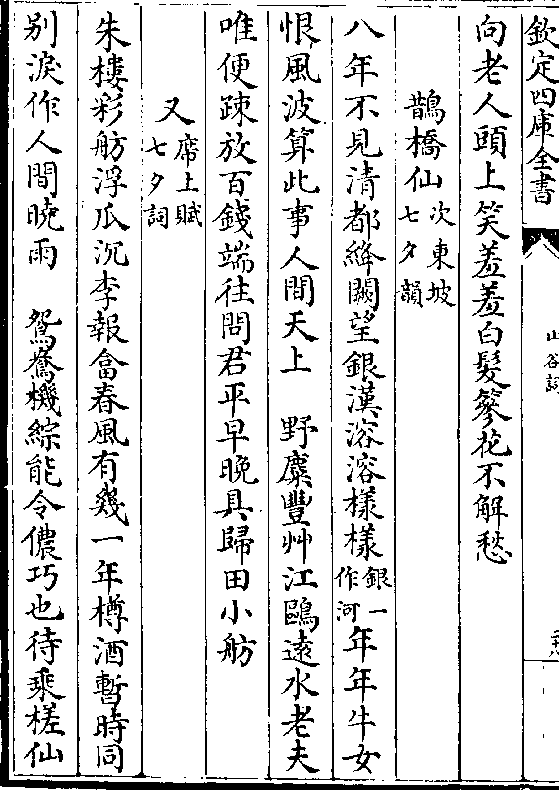 欽定四庫全書
山谷詞
向老人頭上笑羞羞白髮簪花不解愁
鵲橋仙次東坡七夕韻
八年不見清都絳闕望銀漢溶溶漾漾銀一作河年年牛女
恨風波算此事人間天上　野麋豐艸江鷗遠水老夫
唯便踈放百錢端往問君平早晚具歸田小舫
又席上賦七夕詞
朱樓彩舫浮瓜沉李報畣春風有幾一年樽酒暫時同
别淚作人間曉雨　鴛鴦機綜能令儂巧也待乘槎仙